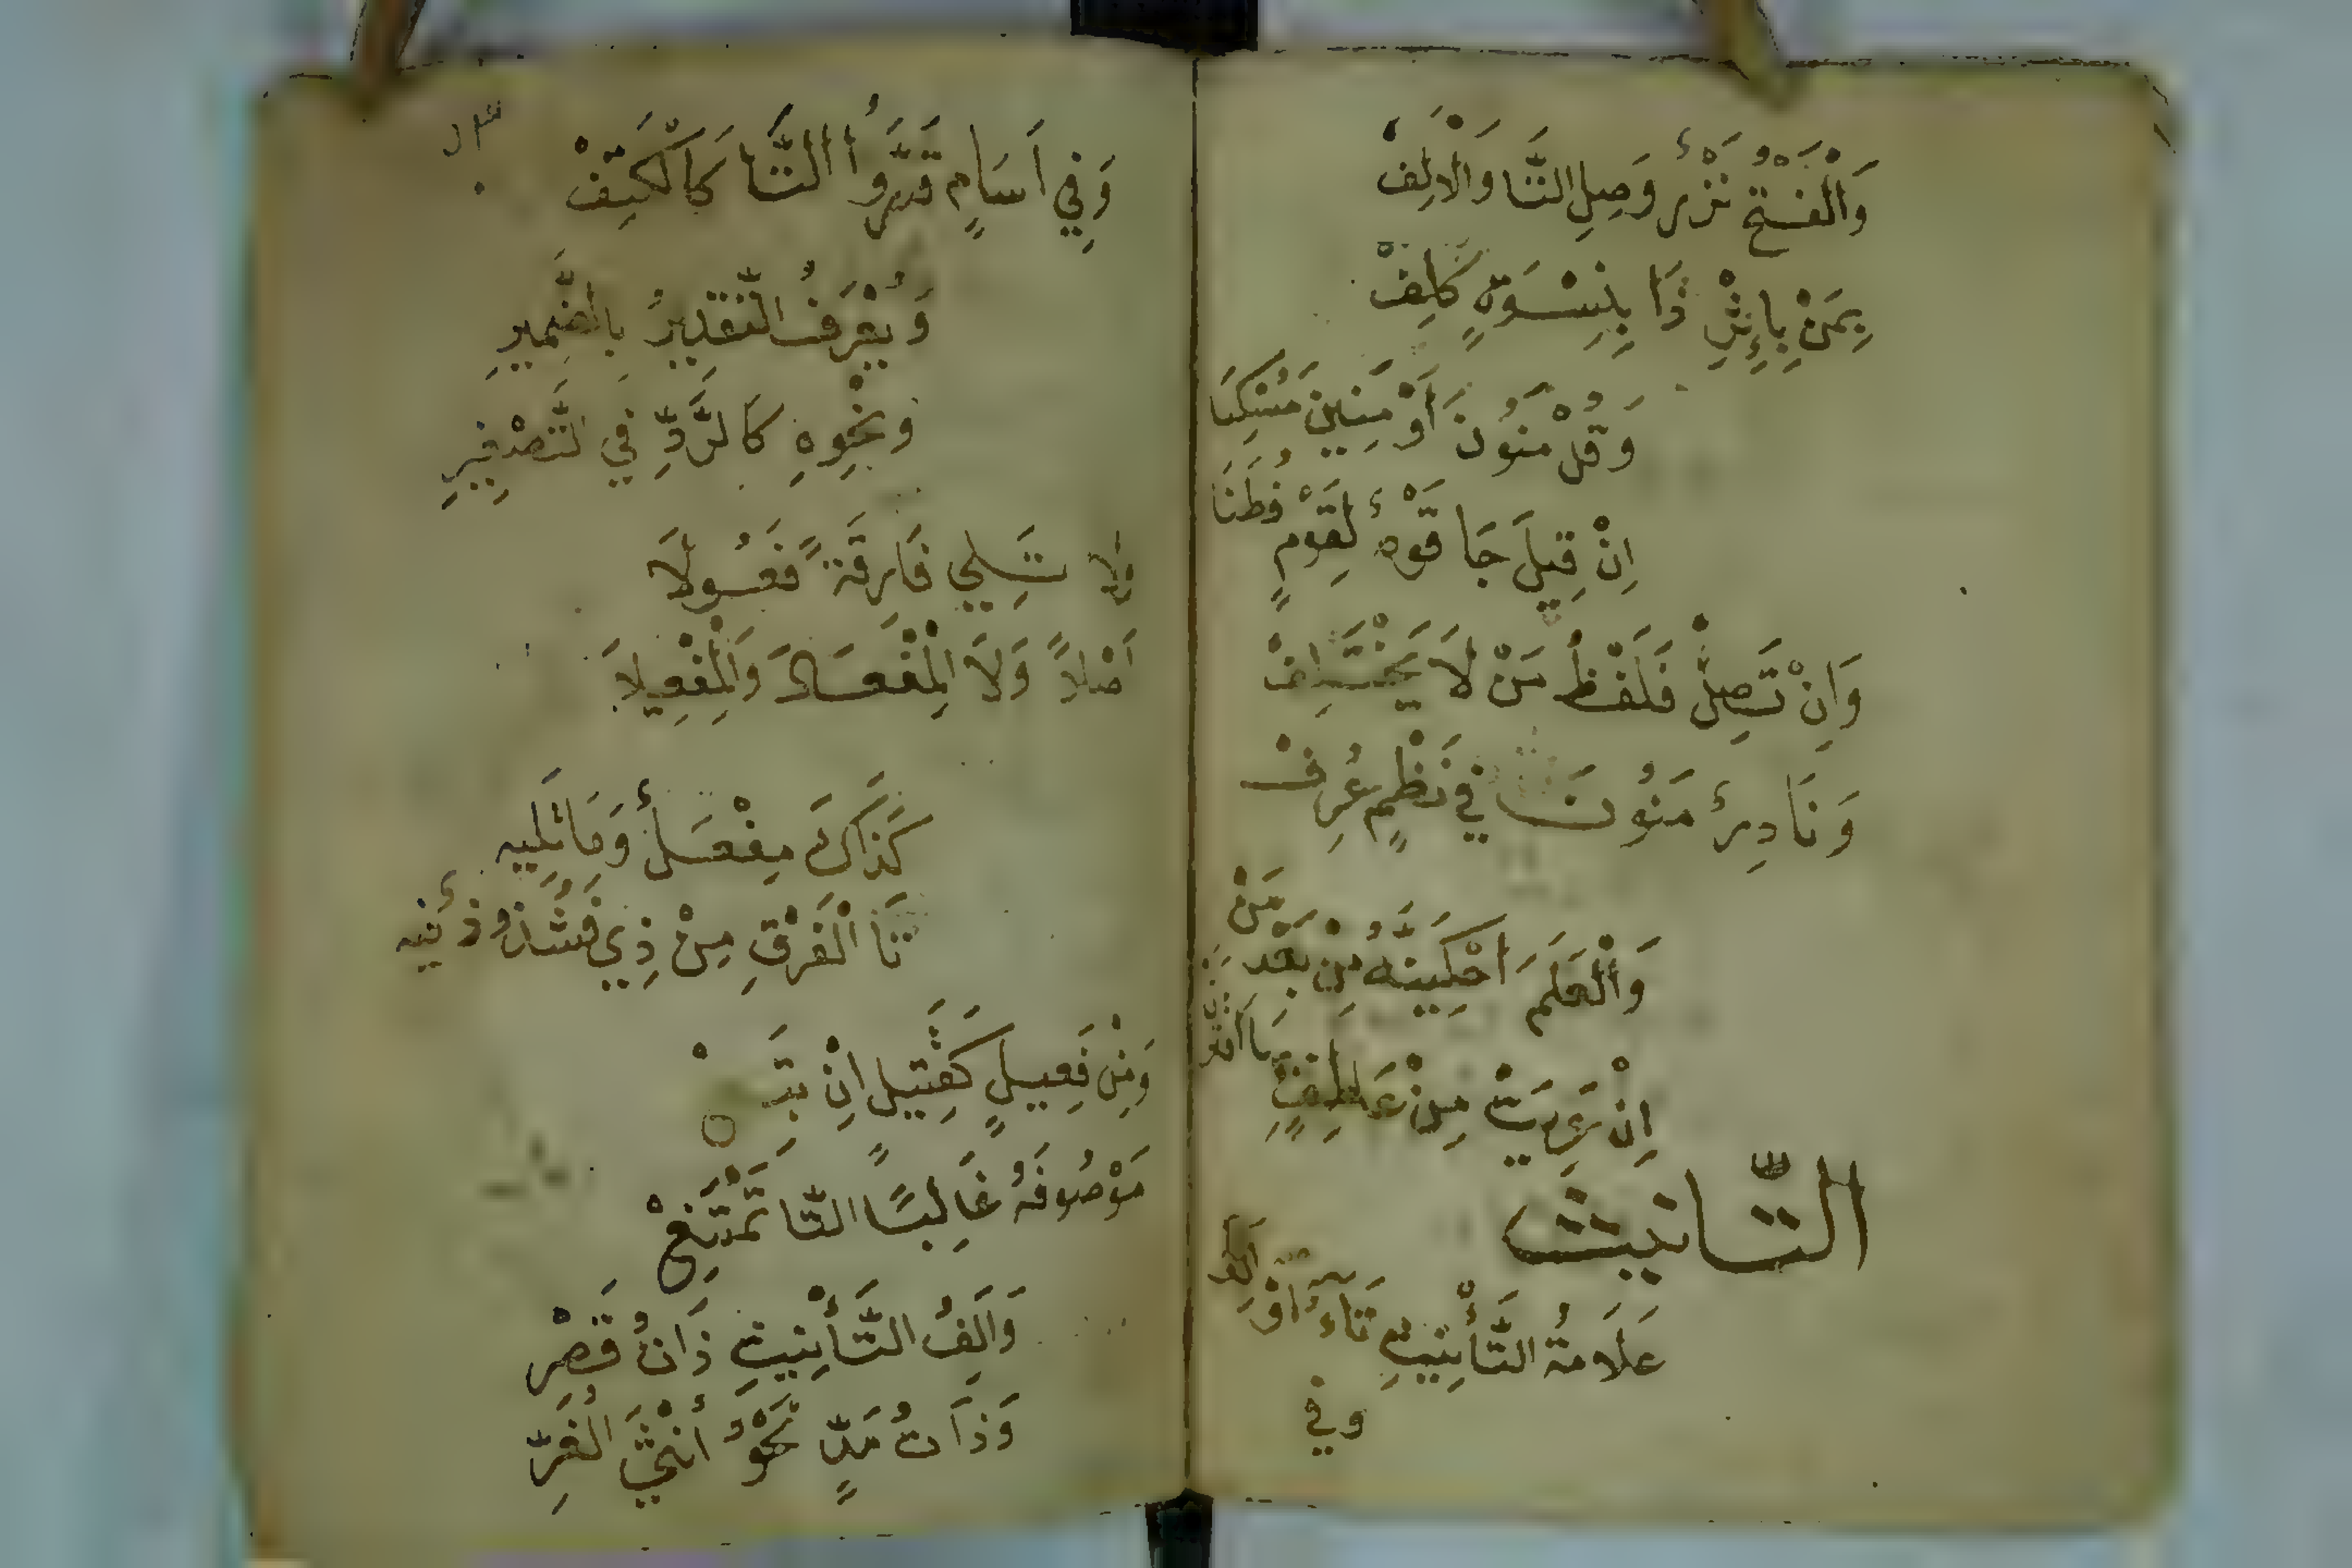 وَالْفَتْحُ نَزْرٌ وَصِلِ التَّا وَالْأَلِفْ
بِمَنْ بِإِثْرِ ذَا بِنِسْوَةٍ كَلِفْ
وَقُلْ مَنُونَ أَوْ مَنِينَ مُسْكِنَا
اِنْ قِيلَ جَا قَوْمٌ لِقَوْمٍ فُطَنَا
وَاِنْ تَصِلْ فَلَفْظُ مَنْ لَا يَخْتَلِفْ
وَنَادِرٌ مَنُونَ فِي نَظْمٍ عُرِفْ
وَالْعَلَمَ احْكِيَنَّهُ مِنْ بَعْدِ مَنْ
اِنْ عَرِيَتْ مِنْ عَاطِفٍ بِهَا اقْتَرَنْ
التَّانيث
عَلَامَةُ التَّأْنِيثِ تَاءٌ اَوْ اَلِفْ
وفي
وَفِي اَسَامٍ قَدَّرُوا التَّا كَالْكَتِفْ
وَيُعْرَفُ التَّقْدِيرُ بِالضَّمِيرِ
وَنَحْوِهِ كَالرَّدِّ فِي التَّصْغِيرِ
وَلَا تَلِي فَارِقَةً فَعُولَا
اَصْلاً وَلَا الْمِفْعَالَ وَالْمِفْعِيلَا
كَذَاكَ مِفْعَلٌ وَمَا تَلِيهِ
تَا الْفَرْقِ مِنْ ذِي فَشُذُوذٌ فِيهِ
وَمِنْ فَعِيلٍ كَقَتِيلٍ اِنْ تَبِعْ
مَوْصُوفَهُ غَالِبًا التَّا تَمْتَنِعْ
وَاَلِفُ التَّأْنِيثِ ذَاتُ قَصْرِ
وَذَاتُ مَدٍّ نَحْوُ أُنْثَى الْغُرِّ